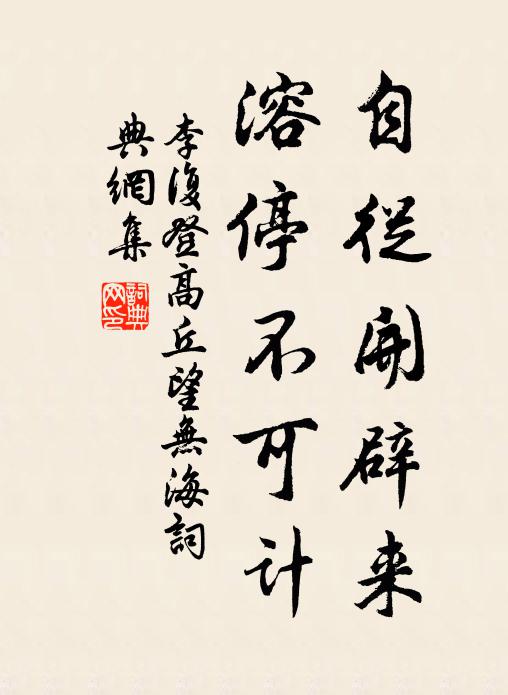 自從開辟来
溶停不可计
李復登高丘望無海詞
典網集
詞典
网印